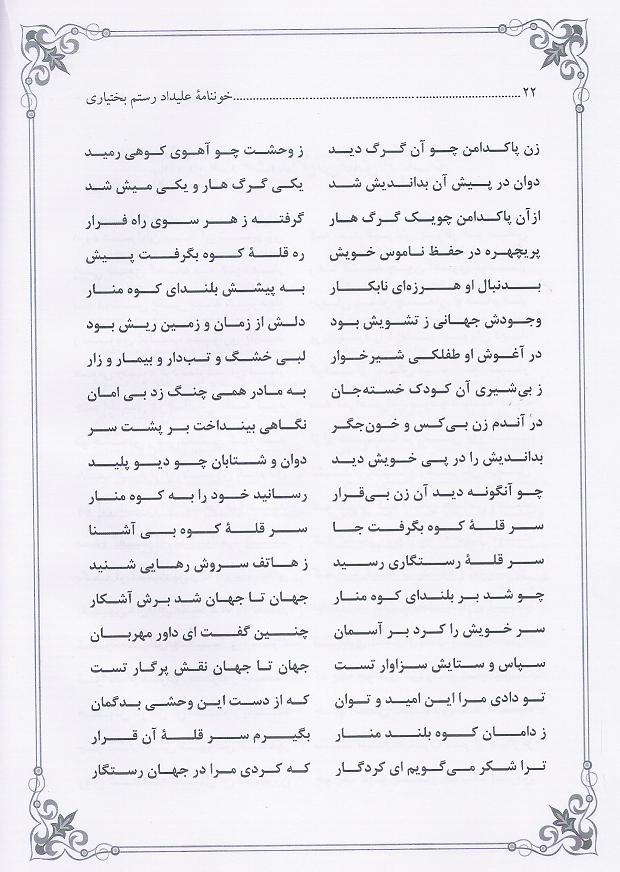 ۲۲ ........................................ خوننامهٔ علیداد رستم بختیاری
زن پاکدامن چو آن گرگ دید ز وحشت چو آهوی کوهی رمید
دوان در پیش آن بداندیش شد یکی گرگ هار و یکی میش شد
ازآن پاکدامن چویک گرگ هار گرفته ز هر سوی راه فرار
پریچهره در حفظ ناموس خویش ره قلهٔ کوه بگرفت پیش
بدنبال او هرزه‌ای نابکار به پیشش بلندای کوه منار
وجودش جهانی ز تشویش بود دلش از زمان و زمین ریش بود
در آغوش او طفلکی شیرخوار لبی خشگ و تب‌دار و بیمار و زار
ز بی‌شیری آن کودک خسته‌جان به مادر همی چنگ زد بی امان
در آندم زن بی‌کس و خون‌جگر نگاهی بینداخت بر پشت سر
بداندیش را در پی خویش دید دوان و شتابان چو دیو پلید
چو آنگونه دید آن زن بی‌قرار رسانید خود را به کوه منار
سر قلهٔ کوه بگرفت جا سر قلهٔ کوه بی آشنا
سر قلهٔ رستگاری رسید ز هاتف سروش رهایی شنید
چو شد بر بلندای کوه منار جهان تا جهان شد برش آشکار
سر خویش را کرد بر آسمان چنین گفت ای داور مهربان
سپاس و ستایش سزاوار تست جهان تا جهان نقش پرگار تست
تو دادی مرا این امید و توان که از دست این وحشی بدگمان
ز دامان کوه بلند منار بگیرم سر قلهٔ آن قرار
ترا شکر می‌گویم ای کردگار که کردی مرا در جهان رستگار